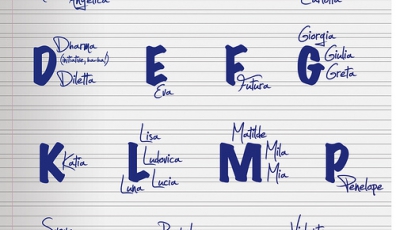 Angelica
D Dharma
(initiative, ha-ha!)
Diletta
E
Eva
F
Futura
Giorgia
G Giulia
Greta
K Katia
Lisa
L Ludovica
Luna Lucia
Matilde
M Mila
Mia
P
Penelope